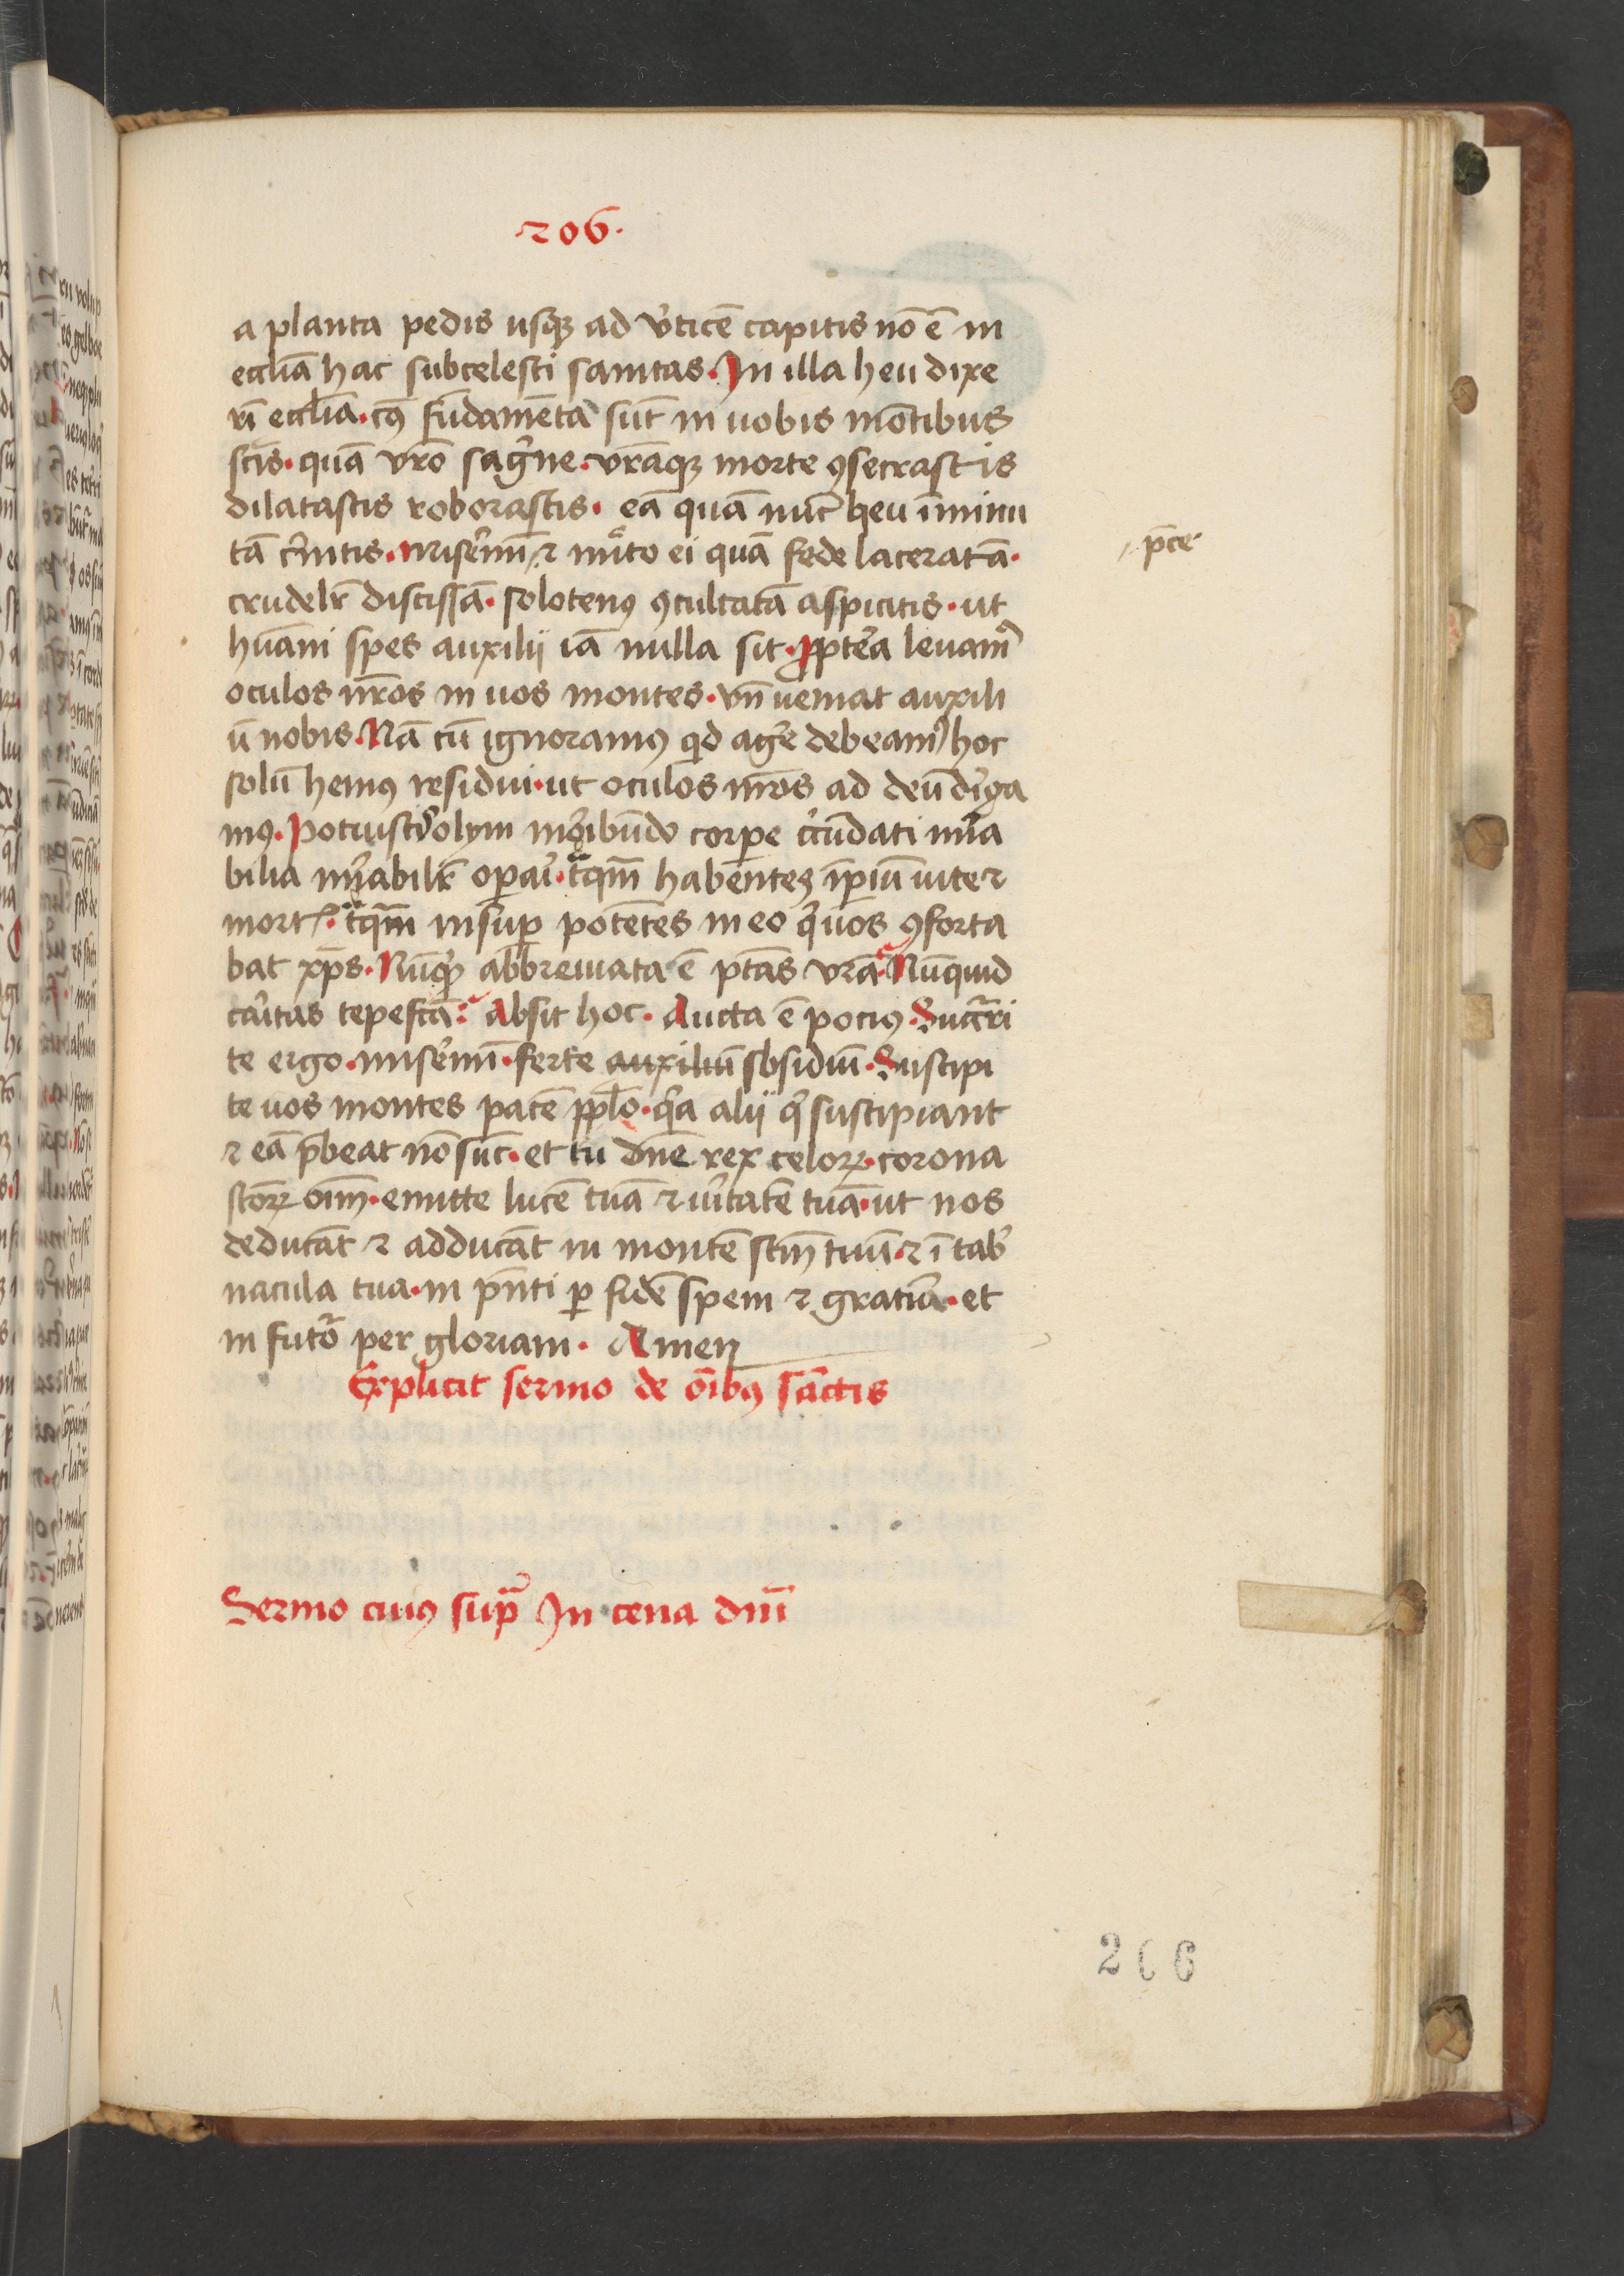 ·206·
a planta pedis usqꝫ ad v̓ticē capitis nō ē in
eccl̄ia hac subcelesti sanitas. In illa heu dixe
rī eccl̄ia. cꝰ fūdamēta sūt in uobis mōtibus
sc̄is. quā vr̄o sāg̓ne. vr̄aqꝫ morte ꝯsecrastis
dilatastis roborastis. eā quā nūc heu īminu
tā c̓nitis. Mise̓mī ⁊ mͥto ei quā fede laceratā.
crudelr̄ discissā. solotenꝰ ꝯculcatā aspicitis. ut
hūani spes auxilii iā nulla sit. ꝓpte̓a leuamꝰ
oculos nr̄os in uos montes. vn̄ ueniat auxili
ū nobis. Nā cū ignoramꝰ qͥd age̓ debeamꝰ hoc
solū hēmꝰ residui. ut oculos nr̄os ad deū di̓ga
mꝰ. Potuist̓ olym mo̓ibūdo corpe c̓cūdati mi̓a
bilia mi̓abilr̄ opa̓i. tͣqm̄ habentes īpiū uite ⁊
mort. tͣqm̄ insuꝑ potētes in eo qͥ uos ꝯforta
bat xp̄s. Nūqͥd abbreuiata ē pt̄as vr̄a. Nūquid
ca̓itas tepefc̄a: Absit hoc. Aucta ē pociꝰ. Succͬri
te ergo. mise̓mī. ferte auxiliū sbsidiū. Suscipi
te uos montes pacē ppl̄o. qͥa alii qͥ suscipiant
⁊ eā p̄beat nō sūt. et tu dn̄e rex celoꝝ. corona
sc̄oꝝ oīm. emitte lucē tuā ⁊ u̓itatē tuā. ut nos
deducāt ⁊ adducāt in montē sc̄m tuū. ⁊ ī tab̓
nacula tua. in pn̄ti ꝑ fidē spem ⁊ gratiā. et
in futͦo per gloriam. Amen
Explicit sermo de oībꝰ sāctis
Sermo cuiꝰ supͣ In cena dn̄i
206